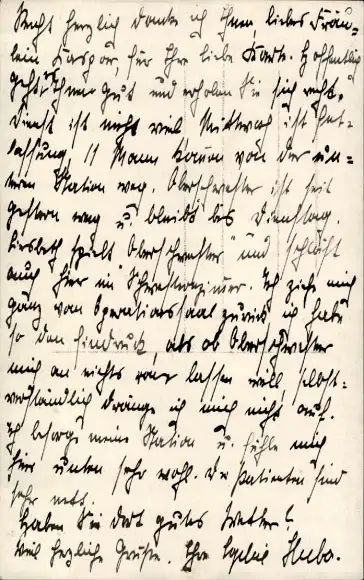 Recht herzlich danke ich Ihnen, liebes Fräu-
lein Kaspar, für Ihre liebe Karte. Hoffentlich
geht's Ihnen gut und erholen Sie sich recht.
Dienst ist nicht viel Mittwoch ist Ent-
lassung, 11 Mann kommen von der un-
teren Station weg. Oberschwester ist seit
gestern weg u. bleibt bis Dienstag.
Liesbeth spielt "Oberschwester" und schläft
auch hier im Schwesternzimmer. Ich ziehe mich
ganz vom Operationssaal zurück ich habe
so den Eindruck, als ob Oberschwester
mich an nichts ran lassen will, selbst-
verständlich dränge ich mich nicht auf.
Ich besorge meine Station u. fühle mich
hier unten sehr wohl. Die Patienten sind
sehr nett.
Haben Sie dort gutes Wetter?
Viel herzliche Grüße. Ihre Huba.